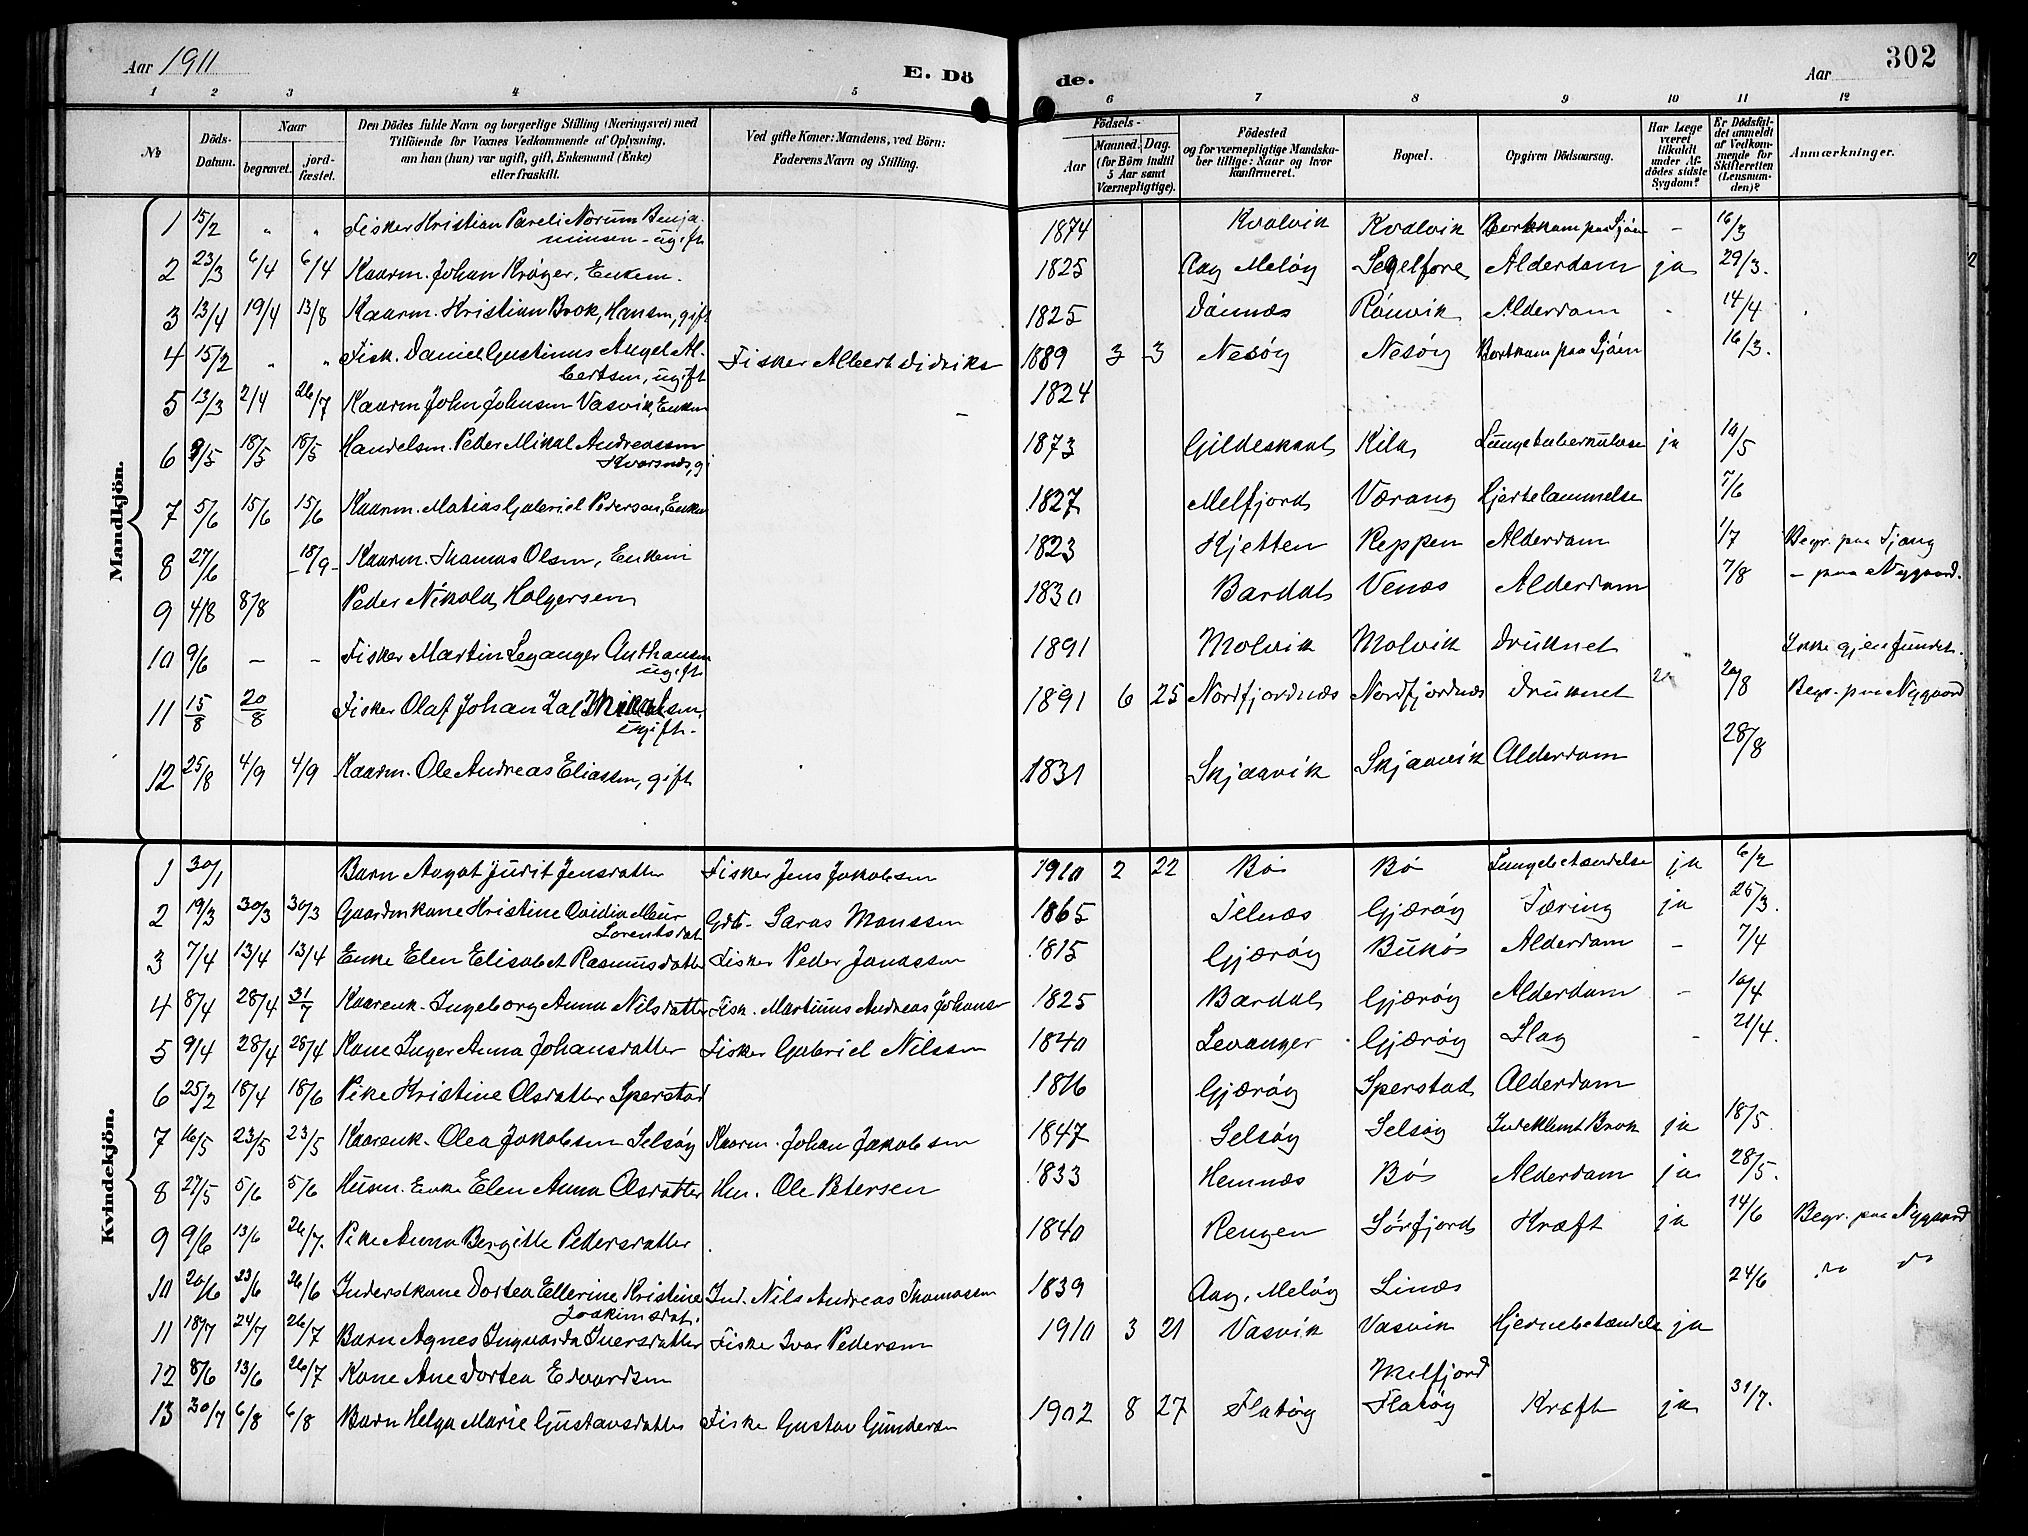 Aar 1911
E. Dö
de.
Aar
302
1 2 3 4 5 6 7 8 9 10 11 12
№ Döds-Datum. Naar begravet. jordfæstet. Den Dödes fulde Navn og borgerlige Stilling (Næringsvei) med Tilföiende for Voxnes Vedkommende af Oplysning, om han (hun) var ugift, gift, Enkemand (Enke) eller fraskilt. Ved gifte Koner: Mandens, ved Börn: Faderens Navn og Stilling. Födsels- Aar Maaned. Dag. (for Börn indtil 5 Aar samt Værnepligtige). Födested og for værnepligtige Mandskaber tillige: Naar og hvor konfirmeret. Bopæl. Opgiven Dödsaarsag. Har Læge været tilkaldt under Afdödes sidste Sygdom? Er Dödsfaldet anmeldt af Vedkommende for Skifteretten (Lensmanden)? Anmærkninger.
Mandkjön.
1 15/2 " " Fisker Kristian Pareli Norum Benjaminsen - ugift 1874 Kvalvik Kvalvik Bortkom paa Sjøen - 16/3
2 23/3 6/4 6/4 Kaarm. Johan Krøger, Enkem. 1825 Aag Meløy Segelfore Alderdom ja 29/3.
3 13/4 19/4 13/8 Kaarm. Kristian Brok, Hansen, gift 1825 Dønnæs Rønvik Alderdom - 14/4
4 15/2 " " Fisk. Daniel Gustinus Angel Albertsen, ugift Fisker Albert Didriks 1889 3 3 Nesøy Nesøy Bortkom paa Sjøen 16/3.
5 13/3 2/4 26/7 Kaarm John Johnsen Vasvik, Enkem 1824
6 9/5 18/5 18/5 Handelsm. Peder Mikal Andreassen Kvarsnes, g 1873 Gildeskaal Kila Lungetuberkulose ja 10/5
7 5/6 15/6 15/6 Kaarm. Matias Gabriel Pedersen, Enkem 1827 Melfjord Værang Hjertelammelse 7/6
8 27/6 18/9 Kaarm. Thomas Olsen, Enkem 1823 Kjetten Reppen Alderdom 1/7 Begr. paa Tjong
9 4/8 8/8 Peder Nikolai Holgersen 1830 Bardal Venæs Alderdom 7/8 - paa Nygaard.
10 9/6 - - Fisker Martin Leganger Anthonsen ugift 1891 Molvik Molvik Druknet " Ikke gjenfundet.
11 15/8 20/8 Fisker Olaf Johan Zal Mikalsen, ugift. 1891 6 25 Nordfjordnæs Nordfjordnæs Druknet 20/8 Begr. paa Nygaard
12 25/8 4/9 4/9 Kaarm. Ole Andreas Eliassen, gift 1831 Skjaavik Skjaavik Alderdom 28/8
Kvindekjön.
1 30/1 Barn Aagot Judit Jensdatter Fisker Jens Jakobsen 1910 2 22 Bø Bø Lungebetændelse ja 6/2
2 19/3 30/3 30/3 Gaardmkone Kristine Ovidia Meur Lorentsdat Gdb. Saras Monssen 1865 Telnæs Gjærøy Tæring ja 25/3.
3 7/4 13/4 13/4 Enke Elen Elisabet Rasmusdatter Fisker Peder Jonassen 1815 Gjærøy Bukøs Alderdom - 7/4
4 8/4 28/4 31/7 Kaarenk. Ingeborg Anna Nilsdatter Fisk. Martinus Andreas Johans 1825 Bardal Gjærøy Alderdom - 10/4
5 9/4 28/4 28/4 Kone Inger Anna Johansdatter Fisker Gabriel Nilssen 1840 Levanger Gjærøy Slag - 21/4.
6 25/2 18/4 18/6 Pike Kristine Olsdatter Sperstad 1816 Gjærøy Sperstad Alderdom
7 16/5 23/5 23/5 Kaarenk. Olea Jakobsen Selsøy Kaarm. Johan Jakobsen 1847 Selsøy Selsøy Indeklemt Brok ja 18/5.
8 27/5 5/6 5/6 Husm. Enke Elen Anna Olsdatter Hm. Ole Petersen 1833 Hemnæs Bø Alderdom ja 28/5.
9 9/6 13/6 26/7. Pike Anna Bergitte Pedersdatter 1840 Rengen Sørfjord Kræft ja 14/6 Begr. paa Nygaard
10 20/6 23/6 26/6 Inderstkone Dortea Ellerine Kristine Joakimsdat. Ind. Nils Andreas Thomassen 1839 Aag, Meløy Linæs 24/6 do do
11 18/7 24/7 26/7 Barn Agnes Ingvarda Iversdatter Fisker Ivar Pedersen 1910 3 21 Vasvik Vasvik Hjernebetændelse ja
12 8/6 13/6 26/7 Kone Ane Dortea Edvardsen Melfjord
13 30/7 6/8 6/8 Barn Helga Marie Gustavsdatter Fisker Gustav Gundersen 1902 8 27 Flatøy Flatøy Kræft ja 31/7.